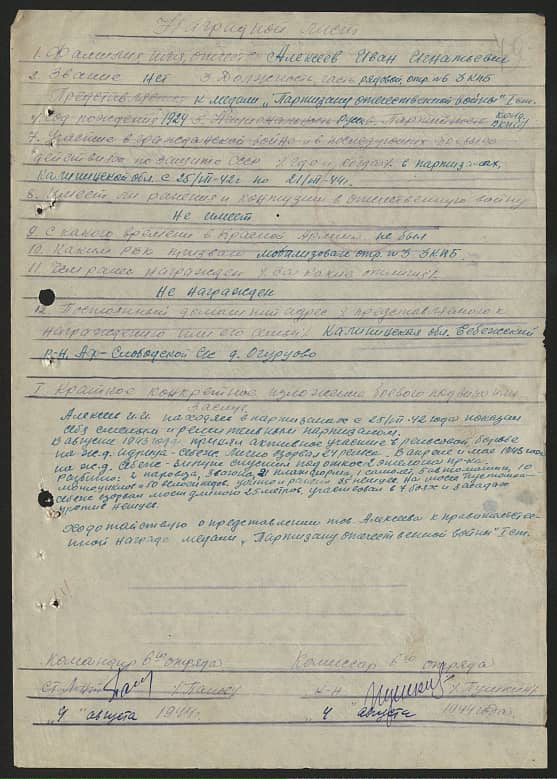 Наградной лист
1. Фамилия имя, отчест. Алексеев Иван Игнатьевич
2. Звание нет 3. Должность, часть рядовой, отр. № 6 3 КПБ
Представляется к медали „Партизану отечественной войны" I ст.
4. Год рождения 1924 5. Национальность русск. Партийность канд. ВКП(б)
7. Участие в гражданской войне и в последующих боевых
действиях по защите СССР /где и когда/ в партизанах,
Калининской обл. с 25/VII-42г по 21/VII-44г.
8. Имеет ли ранения и контузии в отечественную войну
Не имеет
9. С какого времени в Красной Армии не был
10. Каким РВК призван мобилизован отр. № 3 3КПБ
11. Чем ранее награжден /за какие отличия/.
Не награжден
12. Постоянный домашний адрес /представляемого к
награждению или его семьи/. Калининская обл. Себежский
р-н, Ах-Слободской с/с д. Огурцово
I. Краткое конкретное изложение боевого подвига или
заслуг
Алексеев И.И. находясь в партизанах с 25/VII-42 года показал
себя смелым и решительным партизаном.
В августе 1943 года принял активное участие в рельсовой борьбе
на ж.д. Идрица-Себеж лично взорвал 24 рельса. В апреле и мае 1943 года
на ж.д. Себеж - пустил под откос 3 эшелона пр-ка.
Разбито: 2 паровоза, 7 вагонов, 21 платформа, 1 самолет, 6 автомашин, 10
мотоциклов и 10 велосипедов, убито и ранено 35 немцев. На шоссе Пустошка-
Себеж взорвал мост длиною 25 метров, участвовал в 7 боях и засадах
против немцев.
Ходотайствую о представлении тов. Алексеева к правительстве-
нной награде медали „Партизану отечественной войны" I ст.
Командир 6го отряда Комиссар 6го отряда
ст. л-нт /Панов/ к-н /Пушкин/
„4" августа 1944г. „4" августа 1944 года.